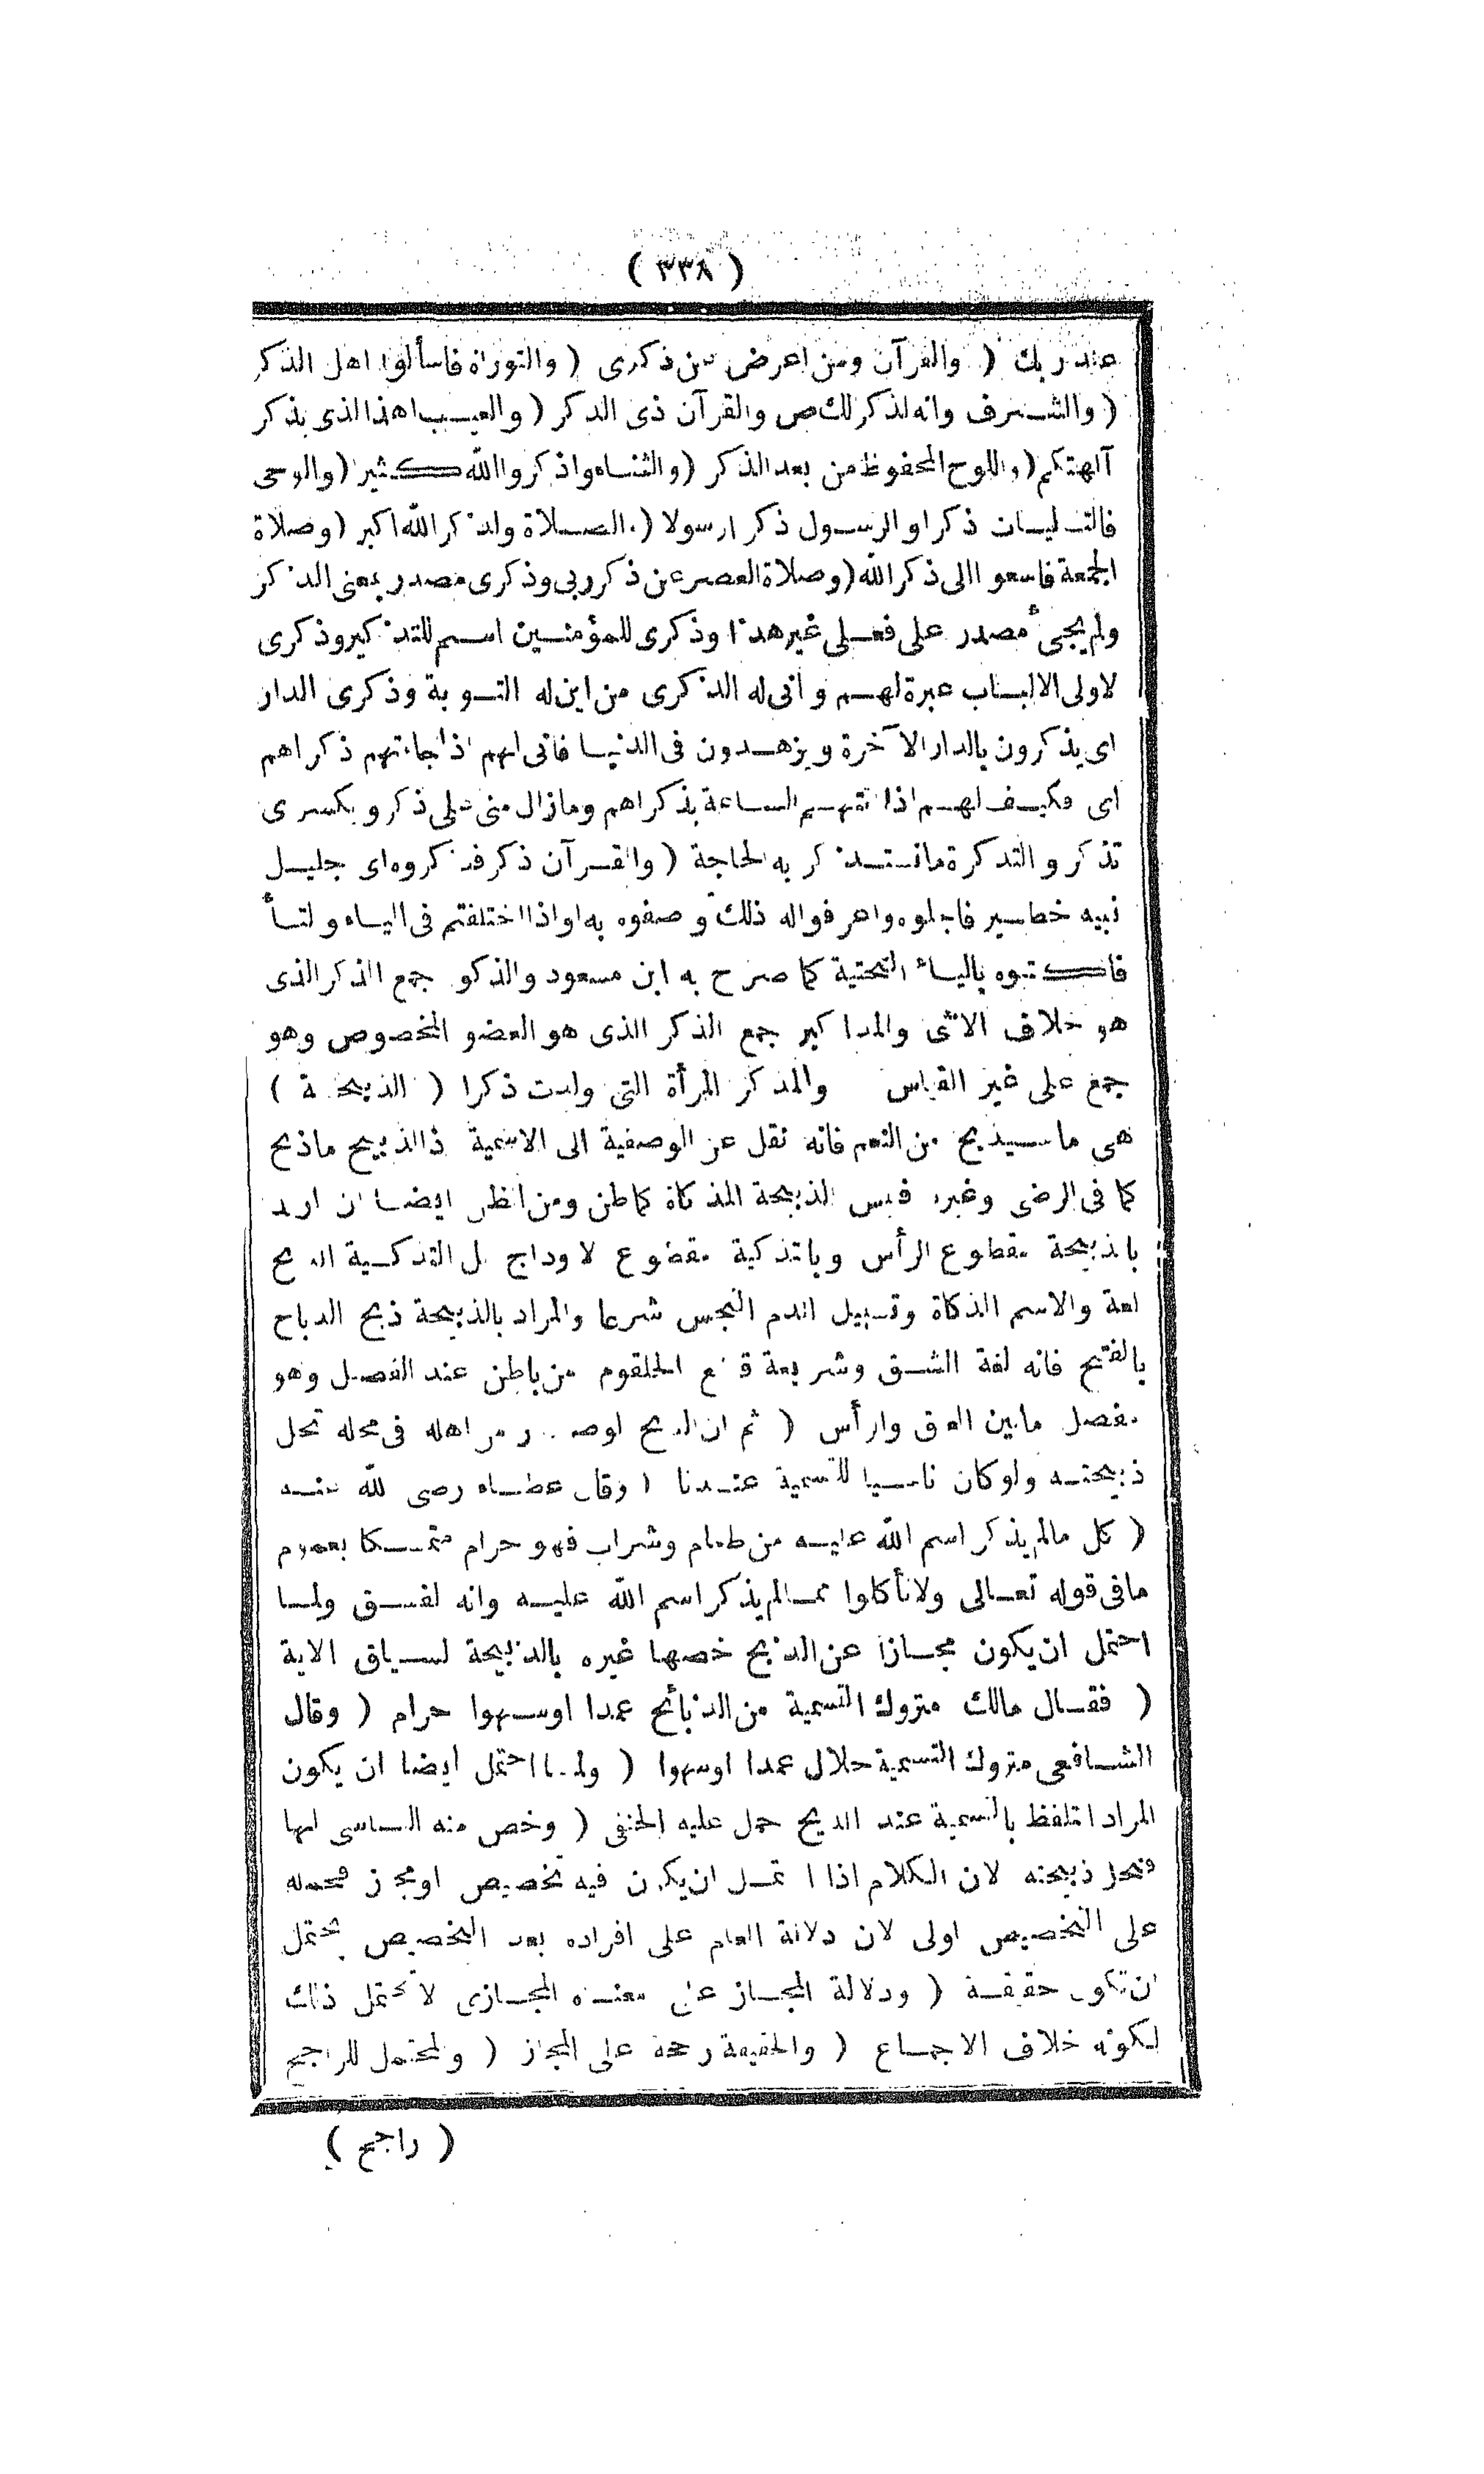 ( ٣٣٨ )
عند ربك ( والقرآن ومن اعرض عن ذكرى ( والتوراة فاسألوا اهل الذكر
( والشرف وانه لذكر لك ص والقرآن ذى الذكر ( والعيب اهذا الذى يذكر
آلهتكم ( واللوح المحفوظ من بعد الذكر ( والثناء واذكروا الله كثيرا ( والوحى
فالتاليات ذكرا والرسول ذكرا رسولا ( الصلاة ولذكر الله اكبر ( وصلاة
الجمعة فاسعوا الى ذكر الله ( وصلاة العصر عن ذكر ربى وذكرى مصدر بمعنى الذكر
ولم يجئ مصدر على فعلى غير هذا وذكرى للمؤمنين اسم للتذكير وذكرى
لاولى الالباب عبرة لهم وانى له الذكرى من اين له التوبة وذكرى الدار
اى يذكرون بالدار الآخرة ويزهدون فى الدنيا فانى لهم اذا جائتهم ذكراهم
اى فكيف لهم اذا تتهم الساعة بذكراهم ومازال منى على ذكر ويكسر اى
تذكر والتذكرة ما تستذكر به الحاجة ( والقرآن ذكر فذكروه اى جليل
نبيه خطير فاجلوه واعرفوا له ذلك وصفوه به او اذا اختلفتم فى الياء والتاء
فاكتبوه بالياء التحتية كما صرح به ابن مسعود والذكو جمع الذكر الذى
هو خلاف الانثى والمذاكير جمع الذكر الذى هو العضو المخصوص وهو
جمع على غير القياس والمذكر المرأة التى ولدت ذكرا ( الذبيحة )
هى ما سيذبح من النعم فانه نقل عن الوصفية الى الاسمية ذا الذبيح ماذبح
كما فى الرضى وغيره فليس الذبيحة المذكاة كما ظن ومن الظن ايضا ان اريد
بالذبيحة مقطوع الرأس وبالتذكية مقطوع الاوداج بل التذكية الذبح
لغة والاسم الذكاة وتسييل الدم النجس شرعا والمراد بالذبيحة ذبح الذباح
بالفتح فانه لغة الشق وشريعة قطع الحلقوم من باطن عند الفصل وهو
مفصل مابين العنق والرأس ( ثم ان الذبح لو صدر من اهله فى محله تحل
ذبيحته ولو كان ناسيا للتسمية عندنا ( وقال عطاء رضى الله عنه
( كل مالم يذكر اسم الله عليه من طعام وشراب فهو حرام متمسكا بعموم
ما فى قوله تعالى ولا تأكلوا مما لم يذكر اسم الله عليه وانه لفسق ولما
احتمل ان يكون مجازا عن الذبح خصها غيره بالذبيحة لسياق الاية
( فقال مالك متروك التسمية من الذبائح عمدا او سهوا حرام ( وقال
الشافعى متروك التسمية حلال عمدا او سهوا ( ولما احتمل ايضا ان يكون
المراد التلفظ بالتسمية عند الذبح حمل عليه الحنفى ( وخص منه الناسى لها
فتحل ذبيحته لان الكلام اذا احتمل ان يكون فيه تخصيص او مجاز فحمله
على التخصيص اولى لان دلالة العام على افراده بعد التخصيص يحتمل
ان تكون حقيقة ( ودلالة المجاز على معناه المجازى لا تحتمل ذلك
لكونه خلاف الاجماع ( والحقيقة راجحة على المجاز ( والمحتمل للراجح
( راجح )